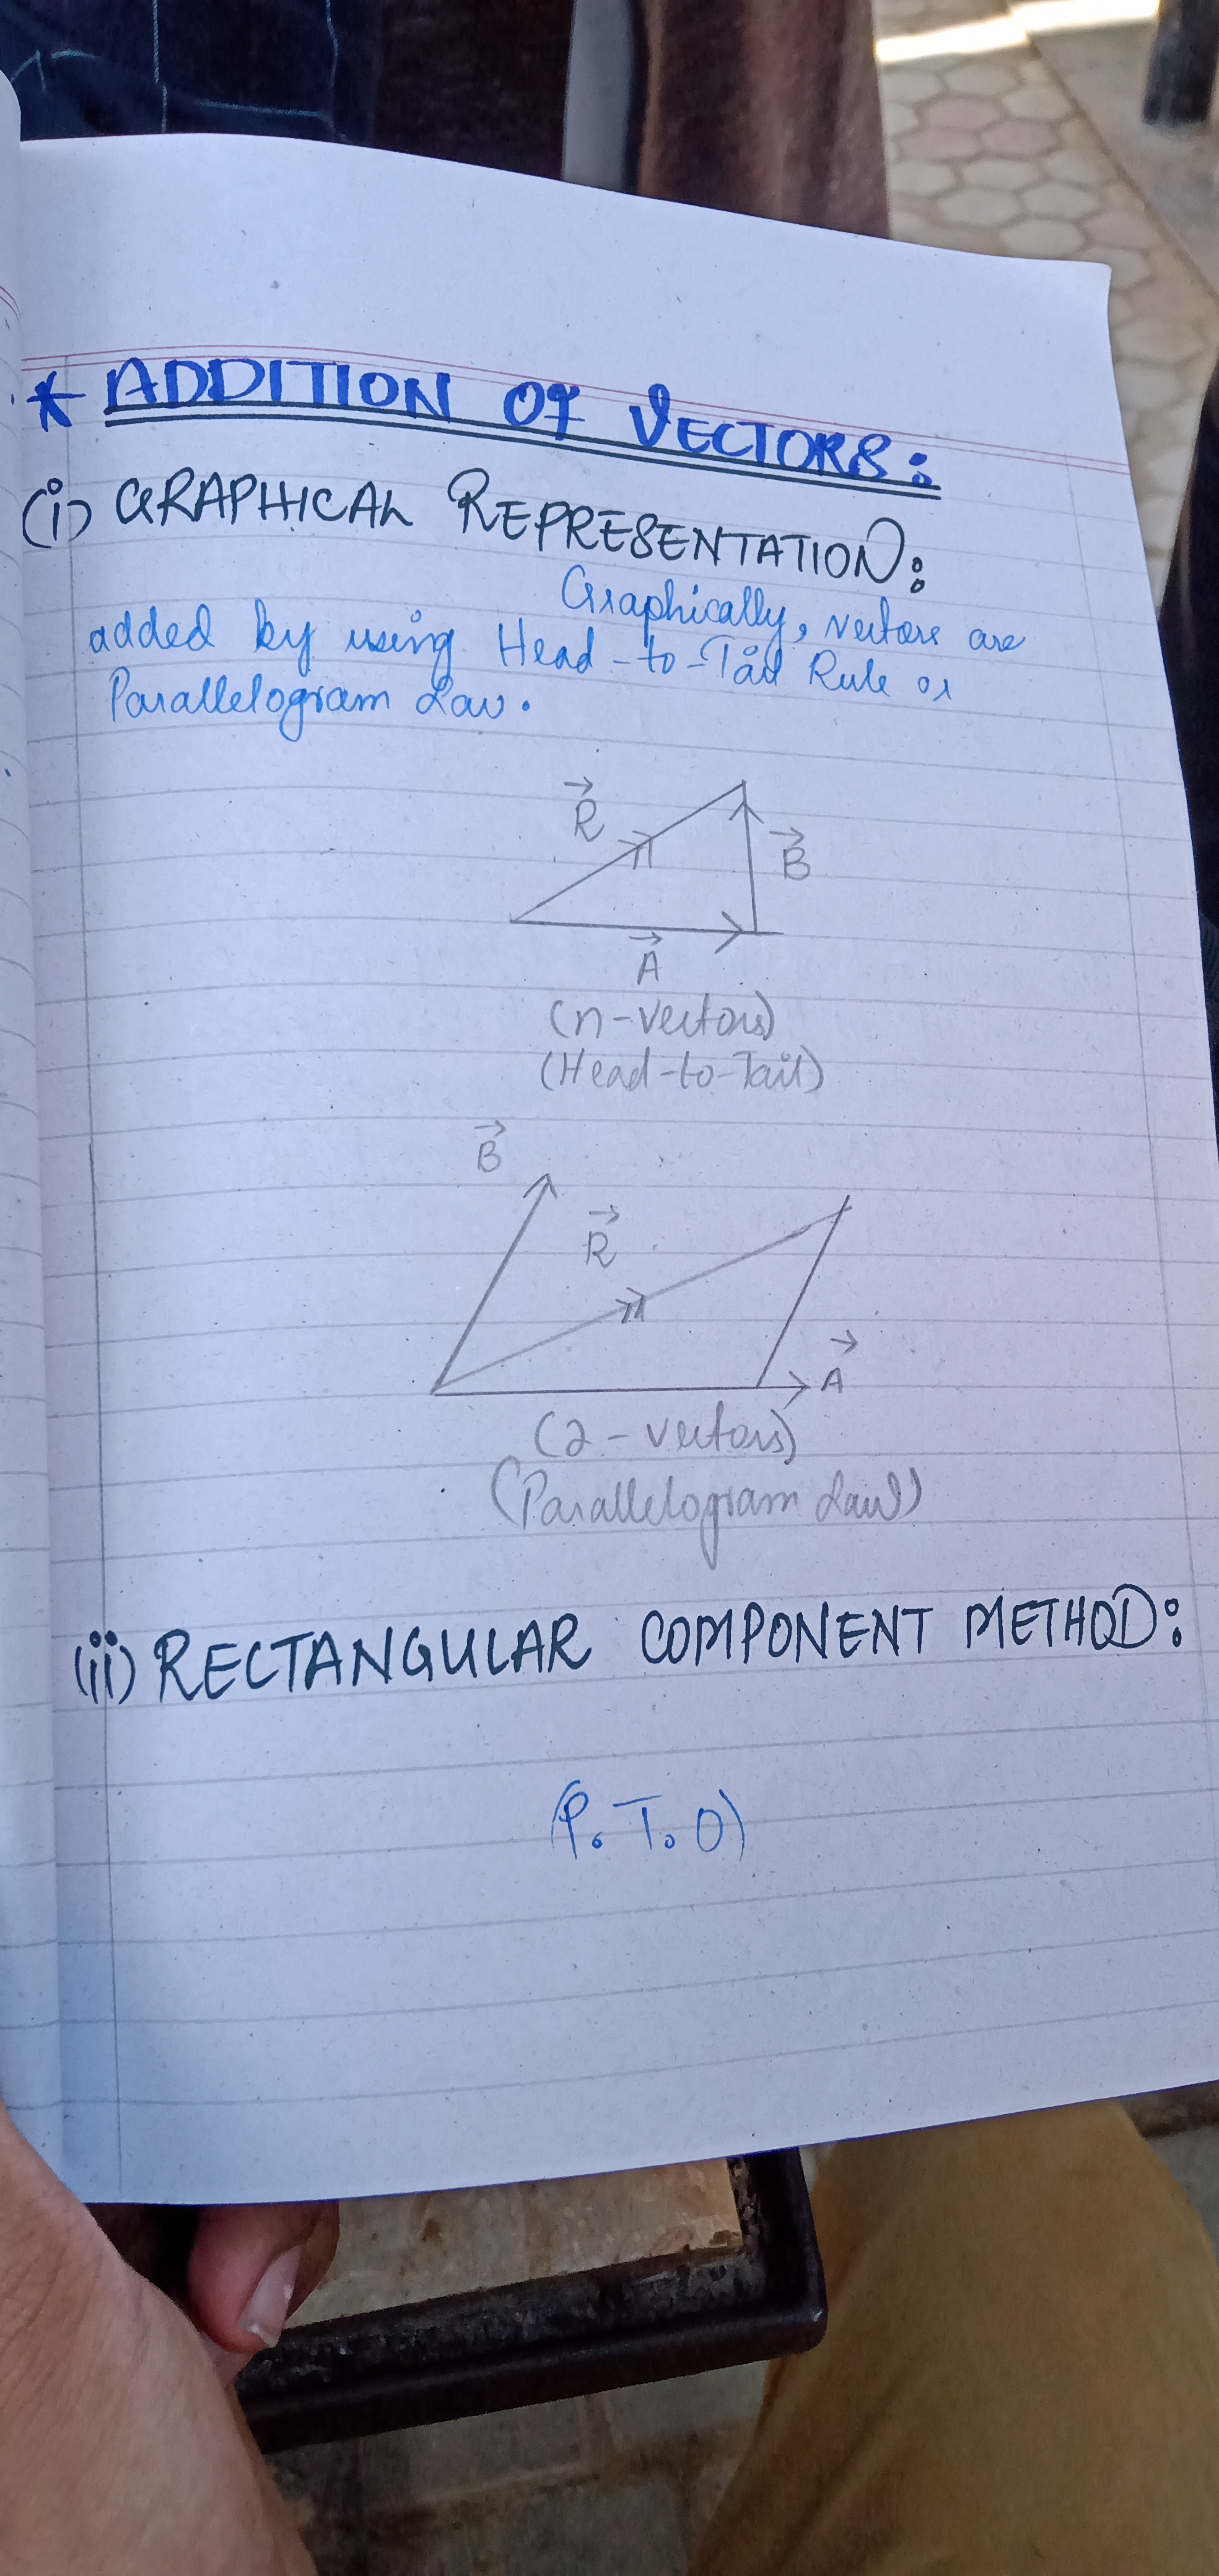 * ADDITION OF VECTORS:
(i) GRAPHICAL REPRESENTATION:
Graphically, vectors are
added by using Head-to-Tail Rule or
Parallelogram Law.
R
B
A
(n-vectors)
(Head-to-Tail)
B
R
A
(2-vectors)
(Parallelogram Law)
(ii) RECTANGULAR COMPONENT METHOD:
(P.T.O)